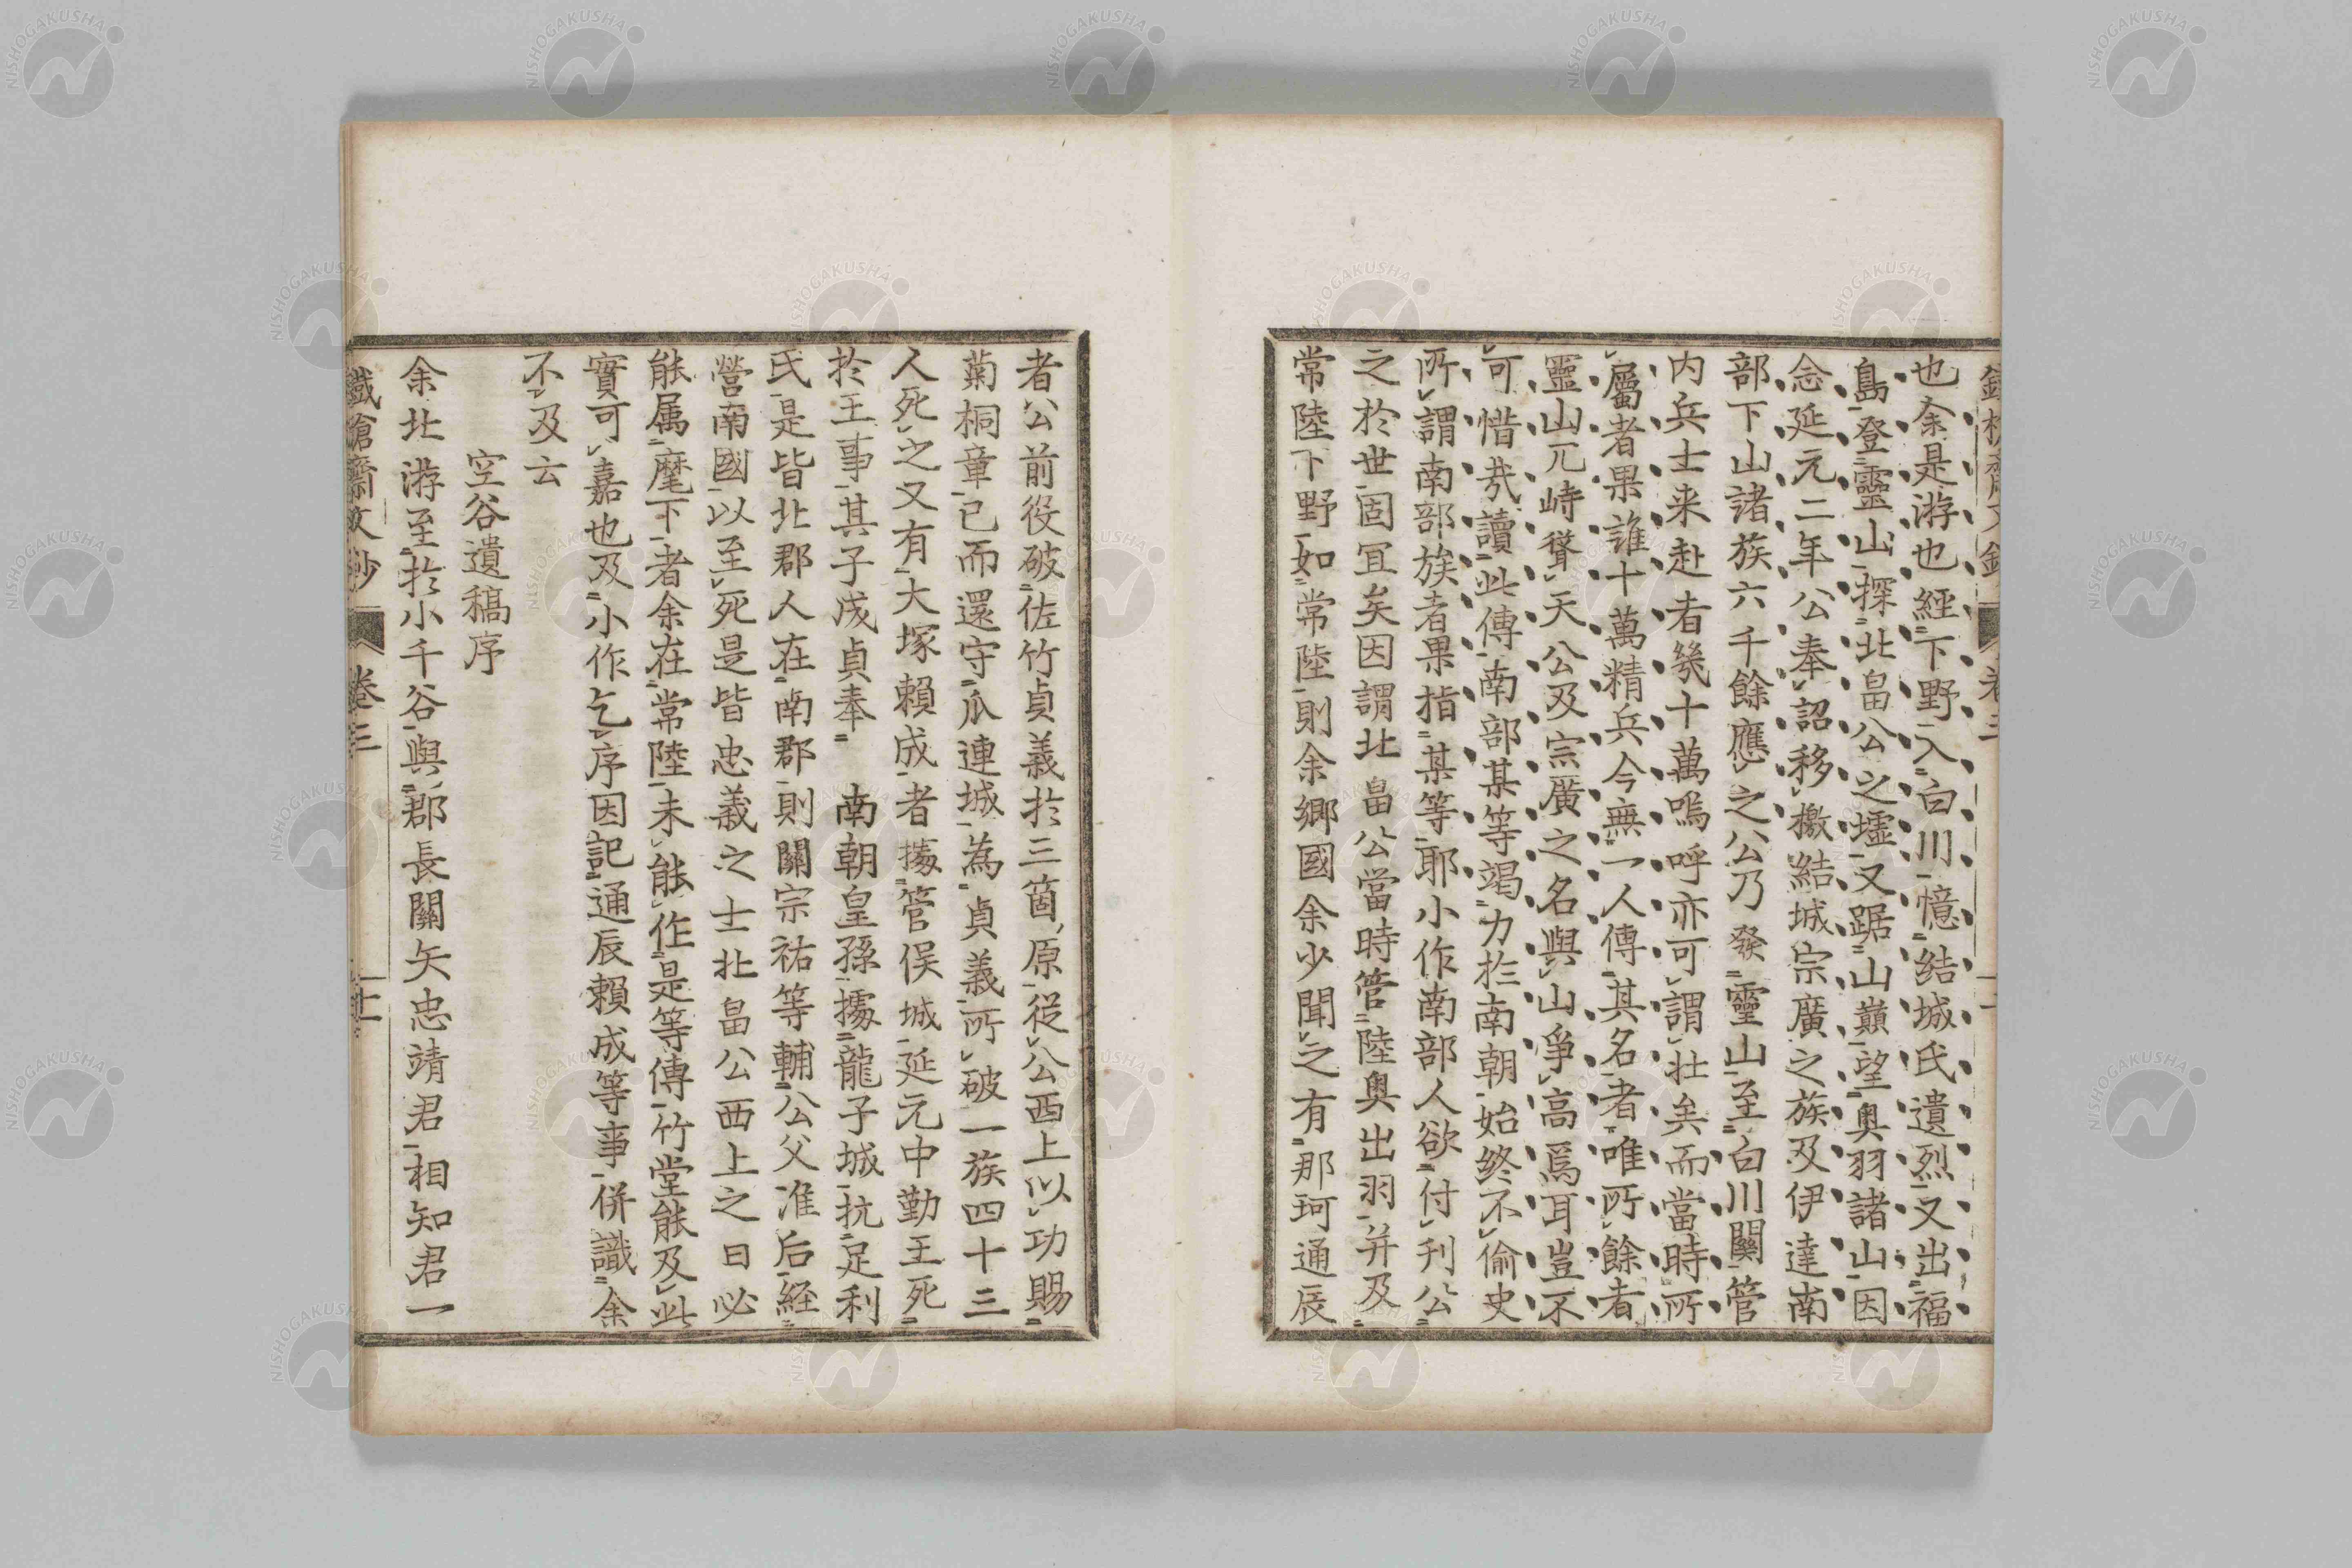 也余是游也經下野入白川憶結城氏遺烈又出福
島登靈山探北畠公之墟又踞山巔望奥羽諸山因
念延元二年公奉詔移檄結城宗廣之族及伊達南
部下山諸族六千餘應之公乃發靈山至白川關管
内兵士来赴者幾十萬嗚呼亦可謂壮矣而當時所
屬者果誰十萬精兵今無一人傳其名者唯所餘者
靈山兀峙聳天公及宗廣之名與山爭高焉耳豈不
可惜哉讀此傳南部某等竭力於南朝始終不偷史
所謂南部族者果指某等耶小作南部人欲付刊公
之於世固冝矣因謂北畠公當時管陸奥出羽并及
常陸下野如常陸則余郷國余少聞之有那珂通辰
者公前役破佐竹貞義於三箇原従公西上以功賜
菊桐章已而還守瓜連城為貞義所破一族四十三
人死之又有大塚頼成者據管俣城延元中勤王死
於王事其子成貞奉 南朝皇孫據龍子城抗足利
氏是皆北郡人在南郡則關宗祐等輔公父准后経
營南國以至死是皆忠義之士北畠公西上之日必
能属麾下者余在常陸未能作是等傳竹堂能及此
實可嘉也及小作乞序因記通辰頼成等事併識余
不及云
空谷遺稿序
余北游至於小千谷與郡長關矢忠靖君相知君一
鐵槍齋文鈔 卷三
NISHOGAKUSHA